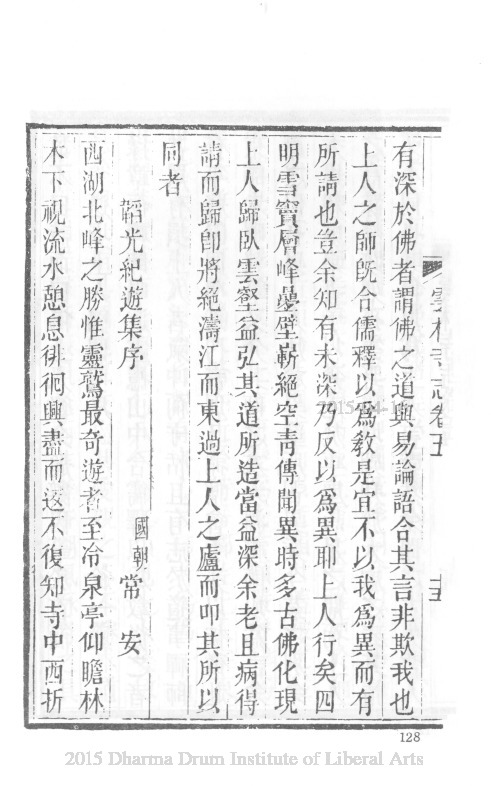 雲林寺志卷五
十五
有深於佛者謂佛之道與易論語合其言非欺我也
上人之師旣合儒釋以爲教是宜不以我爲異而有
所請也豈余知有未深乃反以爲異耶上人行矣四
明雪竇層峰疊壁嶄絕空青傳聞異時多古佛化現
上人歸臥雲壑益弘其道所造當益深余老且病得
請而歸卽將絕濤江而東過上人之廬而叩其所以
同者
韜光紀遊集序 國朝常安
西湖北峰之勝惟靈鷲最奇遊者至冷泉亭仰瞻林
木下視流水憩息徘徊興盡而返不復知寺中西折
128
2015 Dharma Drum Institute of Liberal Arts